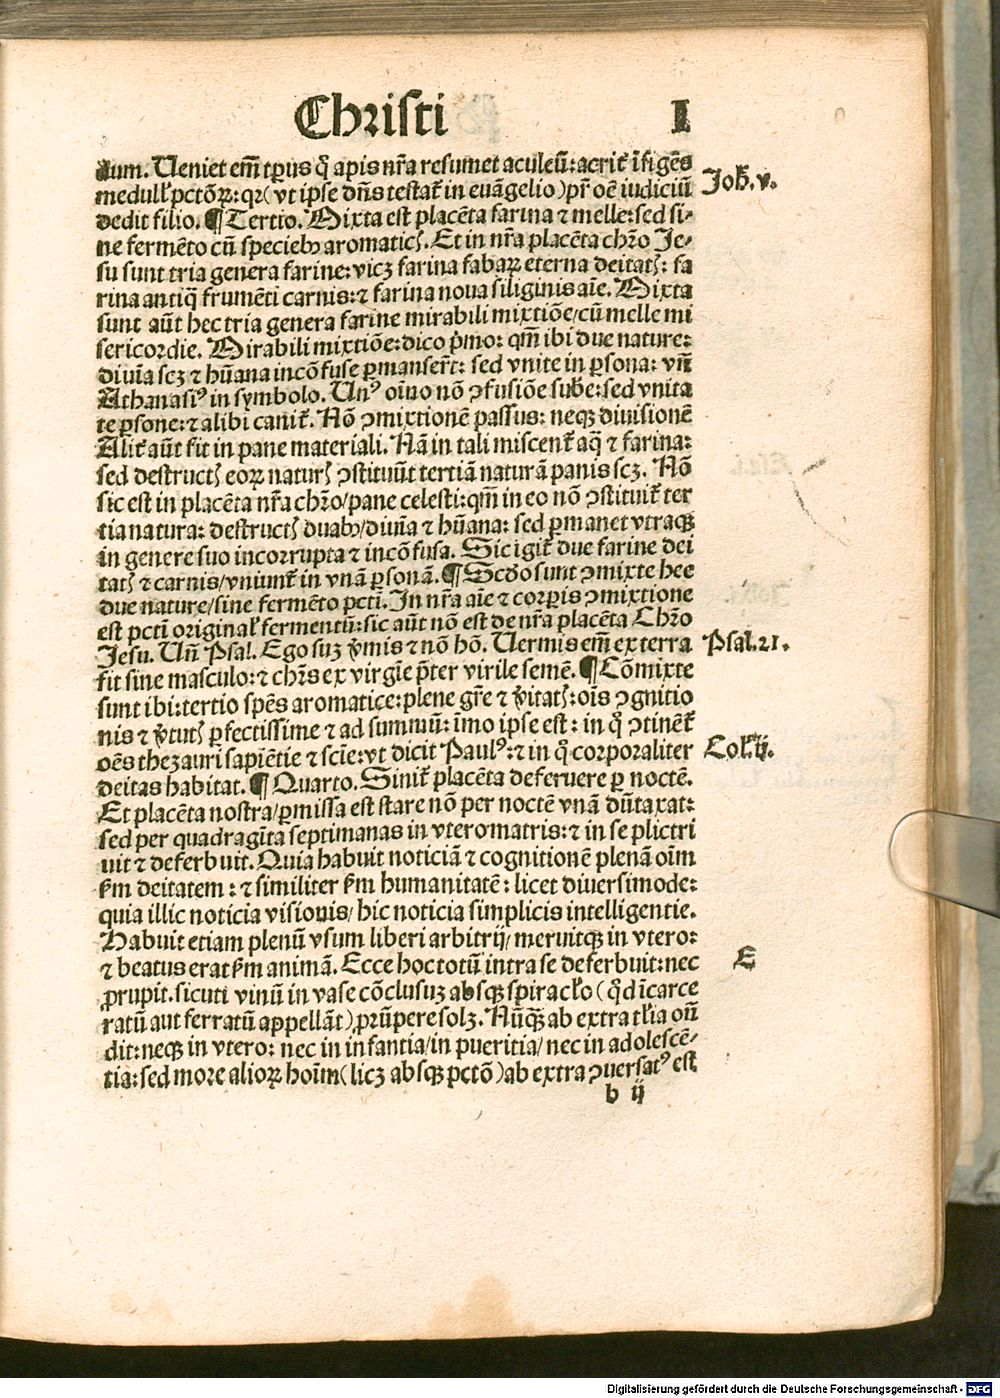 Christi I
dum. Ueniet em̄ tꝑus q̄ apis nr̄a resumet aculeū: acrit̕ īfigēs
medull̕ pctōꝝ: qꝛ (vt ipse dn̄s testat̕ in euāgelio) pr̄ oē iudiciū
Joh̕. v.
dedit filio. ¶ Tertio. Mixta est placēta farina ⁊ melle: sed si⸗
ne fermēto cū speciebꝰ aromaticꝭ. Et in nr̄a placēta chr̄o Je⸗
su sunt tria genera farine: vicꝫ farina fabaꝝ eterna deitatꝭ: fa
rina antiq̄ frumēti carnis: ⁊ farina noua siliginis aīe. Mixta
sunt aūt hec tria genera farine mirabili mixtiōe/ cū melle mi
sericordie. Mirabili mixtiōe: dico p̄mo: qm̄ ibi due nature:
diuīa scꝫ ⁊ hūana incōfuse ꝑmanser̄t: sed vnite in ꝑsona: vn̄
Athanasiꝰ in symbolo. Unꝰ oīno nō ꝯfusiōe sub̄e: sed vnita
te ꝑsone: ⁊ alibi canit̕. Nō ꝯmixtionē passus: neqꝫ diuisionē
Alit̕ aūt fit in pane materiali. Nā in tali miscent̕ aq̄ ⁊ farina:
sed destructꝭ eoꝝ naturꝭ ꝯstituūt tertiā naturā panis scꝫ. Nō
sic est in placēta nr̄a chr̄o/ pane celesti: qm̄ in eo nō ꝯstituit̕ ter
tia natura: destructꝭ duabꝰ/ diuīa ⁊ hūana: sed ꝑmanet vtraqꝫ
in genere suo incorrupta ⁊ incōfusa. Sic igit̕ due farine dei
tatꝭ ⁊ carnis/ vniunt̕ in vnā ꝑsonā. ¶ Scd̄o sunt ꝯmixte hee
due nature/ sine fermēto pcti. In nr̄a aīe ⁊ corꝑis ꝯmixtione
est pcti original̕ fermentū: sic aūt nō est de nr̄a placēta Chr̄o
Jesu. Un̄ Psal. Ego suꝫ v̄mis ⁊ nō hō. Uermis em̄ ex terra
Psal. 21.
fit sine masculo: ⁊ chr̄s ex virgīe p̄ter virile semē. ¶ Cōmixte
sunt ibi: tertio spēs aromatice: plene gr̄e ⁊ v̄itatꝭ: oīs ꝯgnitio
nis ⁊ v̄tutꝭ ꝑfectissime ⁊ ad summū: īmo ipse est: in q̊ ꝯtinēt̕
oēs thezauri sapiētie ⁊ scīe: vt dicit Paulꝰ: ⁊ in q̊ corporaliter
Col̕. ij.
deitas habitat. ¶ Quarto. Sinit̕ placēta deferuere ꝑ noctē.
Et placēta nostra/ ꝑmissa est stare nō per noctē vnā dūtaxat:
sed per quadragīta septimanas in vtero matris: ⁊ in se plictri
uit ⁊ deferbuit. Quia habuit noticiā ⁊ cognitionē plenā oīm
ẜm deitatem: ⁊ similiter ẜm humanitatē: licet diuersimode:
quia illic noticia visionis/ hic noticia simplicis intelligentie.
Habuit etiam plenū vsum liberi arbitrij/ meruitqꝫ in vtero:
⁊ beatus erat ẜm animā. Ecce hoc totū intra se deferbuit: nec
E
ꝓrupit. sicuti vinū in vase cōclusuꝫ absqꝫ spiracl̕o (q̊d īcarce
ratū aut ferratū appellāt) ꝓrūpere solꝫ. Nūqꝫ̄ ab extra tl̕ia on̄
dit: neqꝫ in vtero: nec in infantia/ in pueritia/ nec in adolescē⸗
tia: sed more alioꝝ hoīm (licꝫ absqꝫ pctō) ab extra ꝯuersatꝰ est
b ij
Digitalisierung gefördert durch die Deutsche Forschungsgemeinschaft - DFG